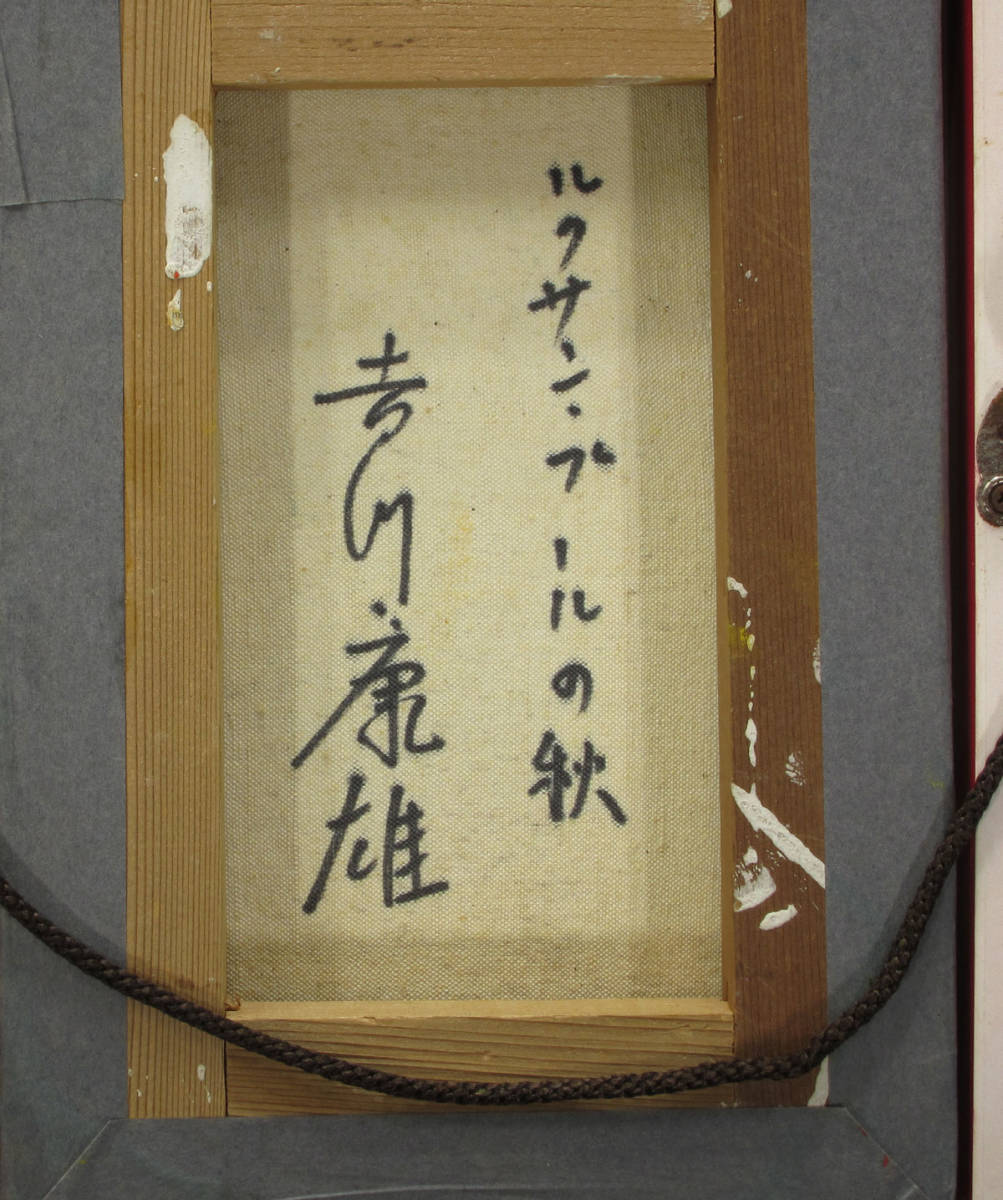 ルクサンブールの秋
吉川康雄